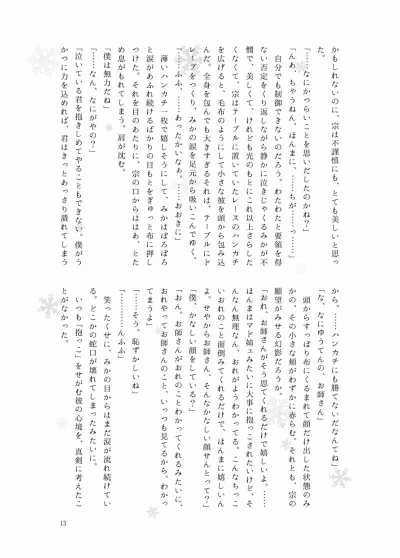 かもしれないのに、宗は不謹慎にも、とても美しいと思っ
た。
「……なにかつらいことを思いだしたのかね？」
「んあ、ちゃうねん、ほんまに、……ちが……っ……」
自分でも制御できないのだろう。わたわたと要領を得
ない否定をくり返しながら静かに泣きじゃくるみかが不
憫で、美しくて、けれども光のもとにこれ以上さらした
くなくて、宗はテーブルに置いていたレースのハンカチ
を広げると、毛布のようにして小さな彼を頭から包み込
んだ。全身を包んでも大きすぎるそれは、テーブルにド
レープをつくり、みかの涙を足元から吸いこんでゆく。
「……ふふ、……あったかいなぁ。……おおきに」
薄いハンカチ一枚で嬉しそうにして、みかはぼろぼろ
と涙があふれ続けるばかりの目もとをぎゅっと布に押し
つけた。それを目のあたりに、宗の口からははあ、とた
め息がもれてしまう。肩が沈む。
「僕は無力だね」
「……なん、なにがやの？」
「泣いている君を抱きしめてやることもできない。僕がう
かつに力を込めれば、君はきっとあっさり潰れてしまう
から。……ハンカチにも勝てないだなんてね」
「な、なにゆうてんの、お師さん」
頭からすっぽり布にくるまれて顔だけ出した状態のみ
かの、その小さな頬がわずかに赤らむ。それとも、宗の
願望がみせる幻影だろうか。
「おれ、お師さんがそう思てくれるだけで嬉しいよ。……
ほんまはマド姉ェみたいに大事に抱っこされたいけど、そ
んなん無理なん、おれがようわかってる。こんなちっこ
いおれのこと面倒みてくれるだけで、ほんまに嬉しいん
よ。せやからお師さん、そんなかなしい顔せんとって？」
「僕、かなしい顔をしている？」
「おん。お師さんがおれのことわかってくれるみたいに、
おれやってお師さんのこと、いっつも見てるから。わかっ
てまうよ」
「…………そう。恥ずかしいね」
「…………んふふ」
笑ったくせに、みかの目からはまだ涙が流れ続けてい
る。どこかの蛇口が壊れてしまったみたいに。
いつも「抱っこ」をせがむ彼の心境を、真剣に考えたこ
とがなかった。
13